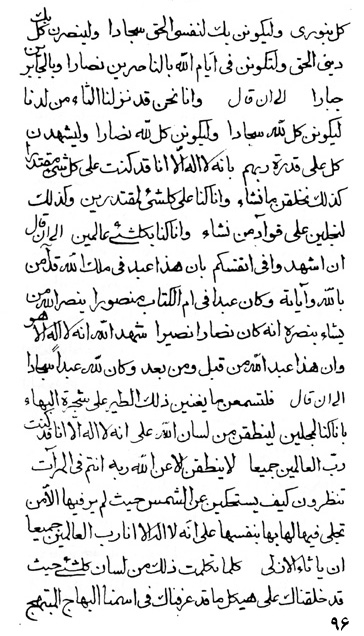 كل بنوری وليكونن بك لنفسو الحق سجادا ولينصرن كل بك
دينی الحق ولتكونن فی ايام الله بالناصرين نصارا وبالجابرين
جبارا الی ان قال وانا نحن قد نزلنا الثاء من لدنا
ليكونن كل لله سجادا وليكونن كل لله نصارا وليشهدن
كل علی قدرة ربهم بانه لا اله الا انا قد كنت علی كل شئ مقتدرا
كذلك نخلقن ما نشاء وانا كنا علی كلشئ لمقتدرين ولذلك
لنجلين علی فؤاد من نشاء وانا كنا بكلشئ عالمين الی ان قال
ان اشهدوا فی انفسكم بان هذا عبد فی ملك الله قد آمن
بالله وآياته وكان عبدا فی ام الكتاب منصورا ينصر الله من
يشاء بنصره انه كان نصارا نصيرا شهد الله انه لا اله الا هو
وان هذا عبد الله من قبل ومن بعد وكان لله عبدا سجادا
الی ان قال فلتسمعن ما يغنين ذلك الطير علی شجرة البهاء
بانا كنا لمجلين لينطقن من لسان الله علی انه لا اله الا انا قد كنت
رب العالمين جميعا لا ينطقن الا عن الله ربه انتم فی المرآت
تنظرون كيف يستحكين عن الشمس حيث لم ير فيها الا من
تجلی فيها لها بها بنفسها علی انه لا اله الا انا رب العالمين جميعا
ان يا ثاء الاولی كلما تكلمت ذلك من لسان كلشئ حيث
قد خلقناك علی هيكل ما قد عرفناك فی اسمنا البهاج المبتهج
٩٦